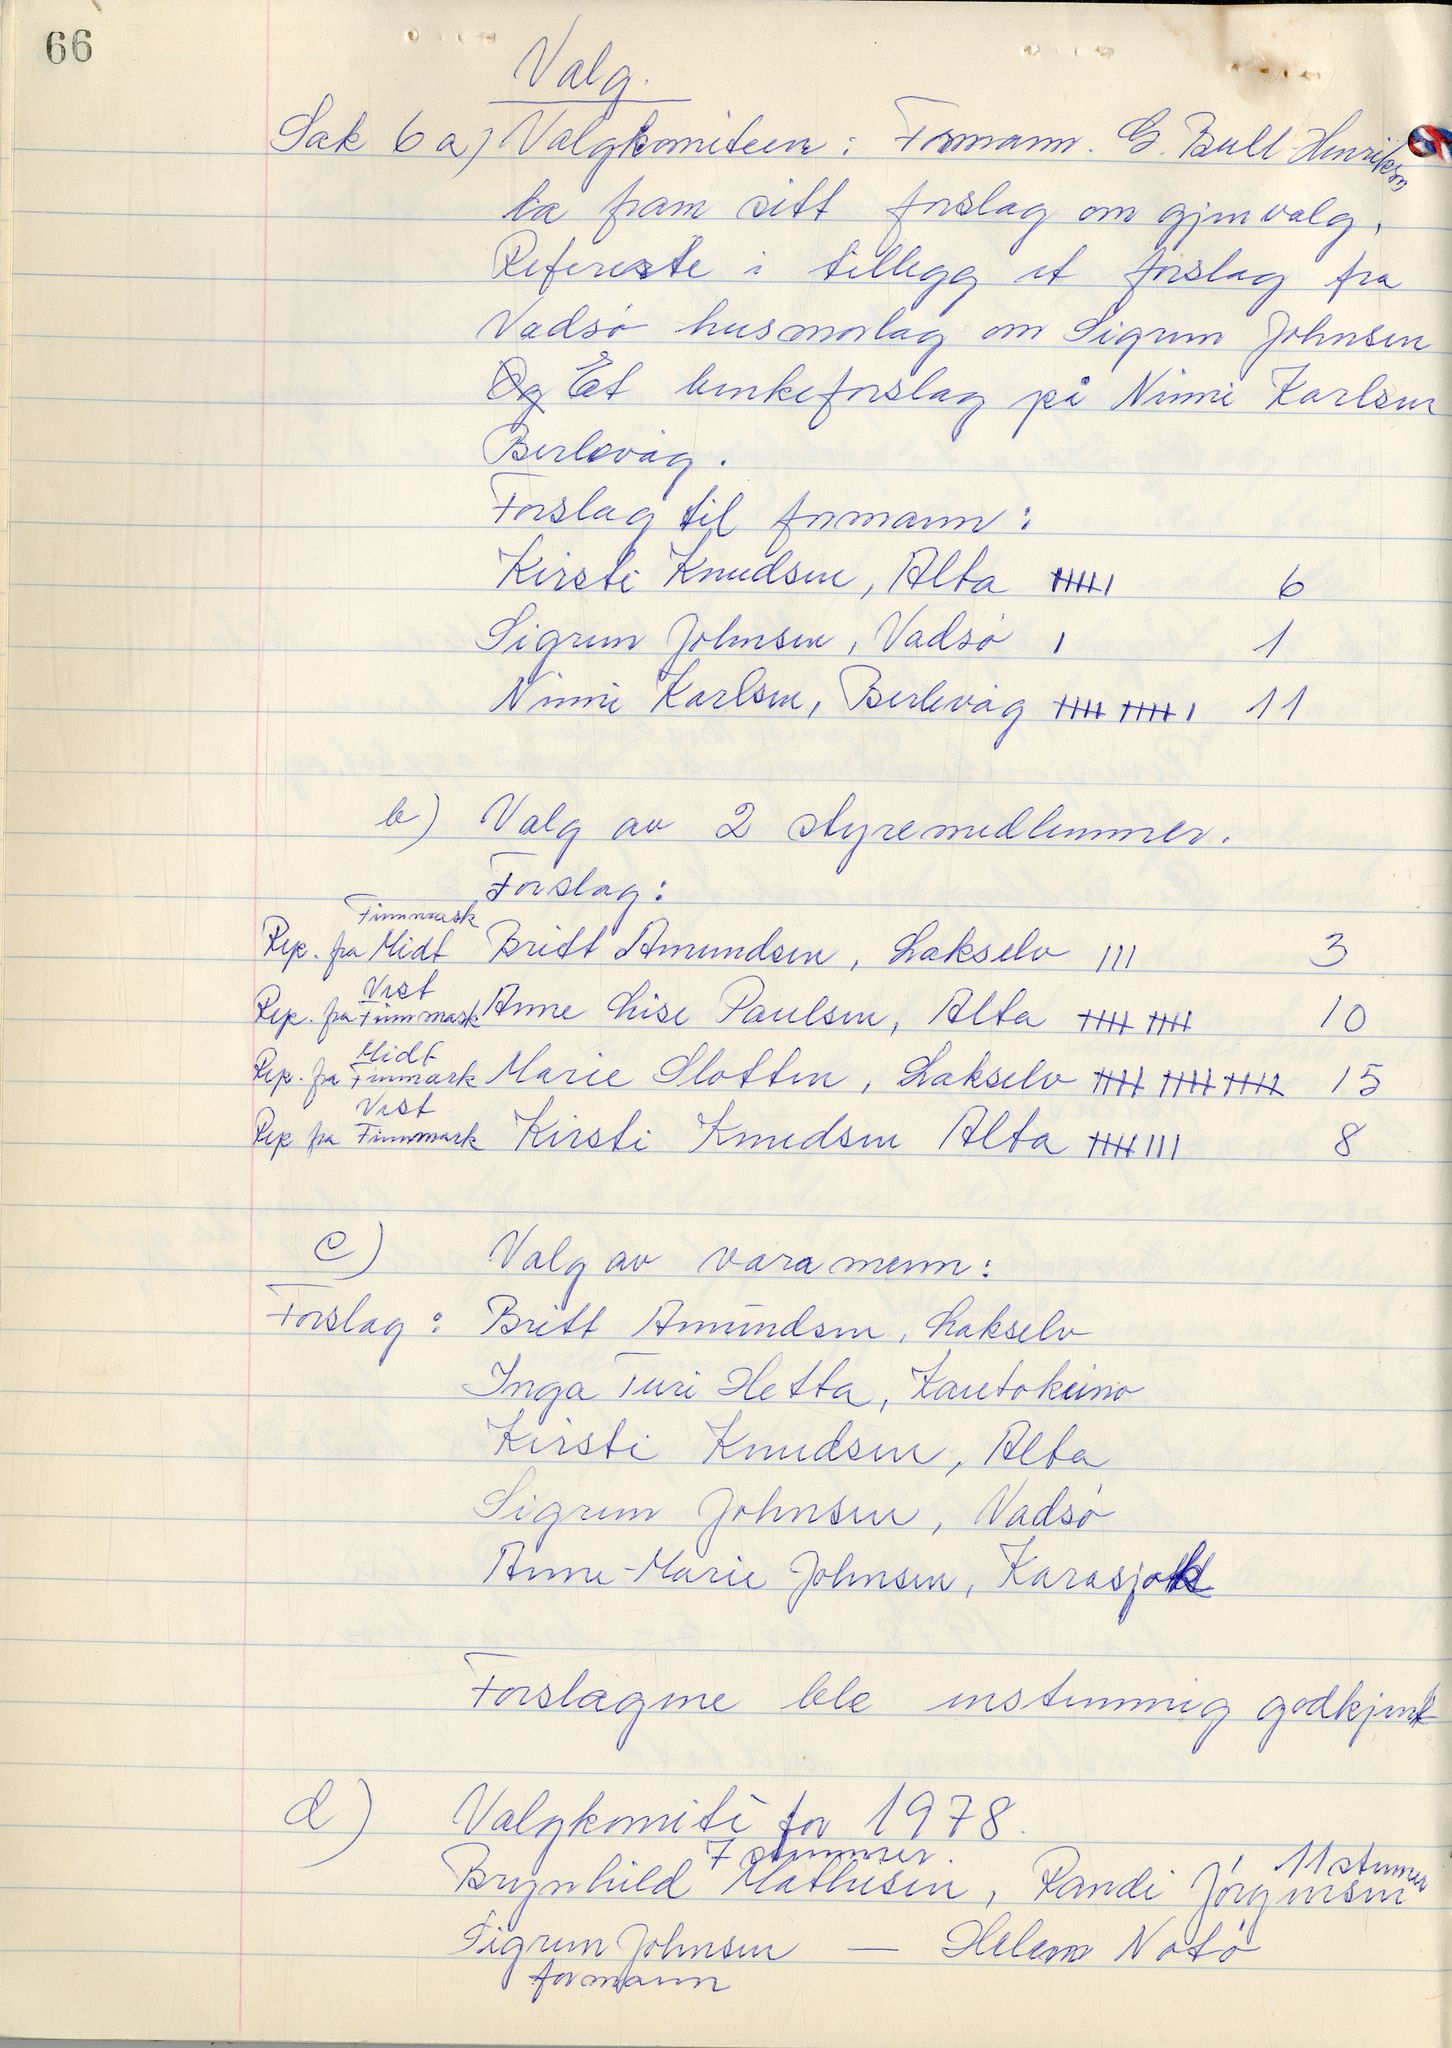 66
Valg.
Sak 6 a) Valgkomiteen: Formann. G. Bull-Henriksen
la fram sitt forslag om gjenvalg.
Refererte i tillegg et forslag fra
Vadsø husmorlag om Sigrun Johnsen
Og Et benkeforslag på Ninni Karlsen
Berlevåg.
Forslag til formann:
Kirsti Knudsen, Alta 6
Sigrun Johnsen, Vadsø 1
Ninni Karlsen, Berlevåg 11
b) Valg av 2 styremedlemmer.
Forslag:
Rep. fra Midt Finnmark Britt Amundsen, Lakselv 3
Rep. fra Vest Finnmark Anne Lise Paulsen, Alta 10
Rep. fra Midt Finnmark Marie Slotten, Lakselv 15
Rep fra Vest Finnmark Kirsti Knudsen Alta 8
c) Valg av varamenn:
Forslag: Britt Amundsen, Lakselv
Inga Turi Hetta, Kautokeino
Kirsti Knudsen, Alta
Sigrun Johnsen, Vadsø
Anne-Marie Johnsen, Karasjok
Forslagene ble enstemmig godkjent
d) Valgkomité for 1978.
7 stemmer. 11 stemmer
Brynhild Mathisen, Randi Jørgensen
Sigrun Johnsen — Helene Notø
formann